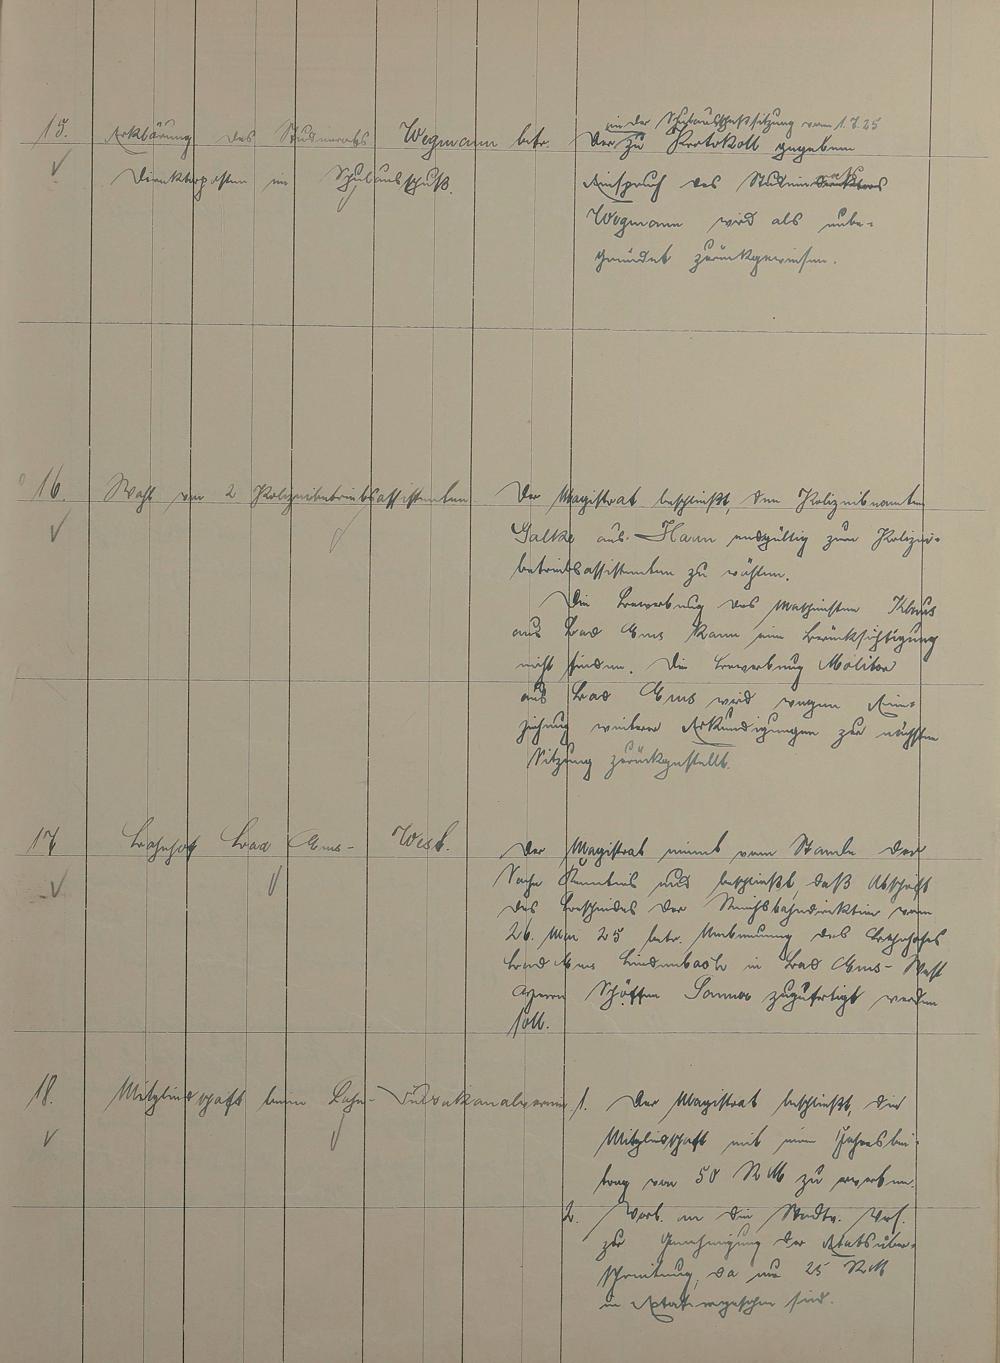 15. Erklärung des Studienrats Wegmann betr.
Direktorposten im Schulausschuß.
in der Schulausschußsitzung vom 1.7.25
Der zu Protokoll gegebene
Einspruch des Studienrats
Wegmann wird als unbe-
gründet zurückgewiesen.
16. Wahl von 2 Polizeibetriebsassistenten
Der Magistrat beschließt, den Polizeibeamten
Galke aus Hann endgültig zum Polizei-
betriebsassistenten zu wählen.
Die Bewerbung des Maschinisten Klaus
aus Bad Ems kann eine Berücksichtigung
nicht finden. Die Bewerbung Molitor
aus Bad Ems wird wegen Ein-
ziehung weiterer Erkundigungen zur nächsten
Sitzung zurückgestellt.
17. Bahnhof Bad Ems- West.
Der Magistrat nimmt vom Stande der
Sache Kenntnis und beschließt, daß Abschrift
des Bescheides der Reichsbahndirektion vom
26. Mai 25 betr. Umbenennung des Bahnhofes
Bad Ems Lindenbach in Bad Ems- West
Herrn Schöffen zugefertigt werden
soll.
18. Mitgliedschaft beim Lahn-
1. Der Magistrat beschließt, die
Mitgliedschaft mit einem Jahresbei-
trag von 50 RM zu erwerben.
2. Vorl. an die Stadtv. Vers.
zur Genehmigung der Etatsüber-
schreitung, da nur 25 RM
im Etat vorgesehen sind.